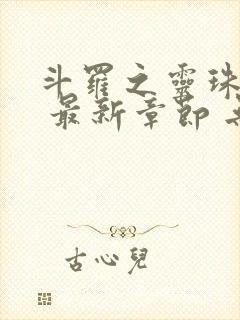 斗羅之靈珠
最新章節
古心兒